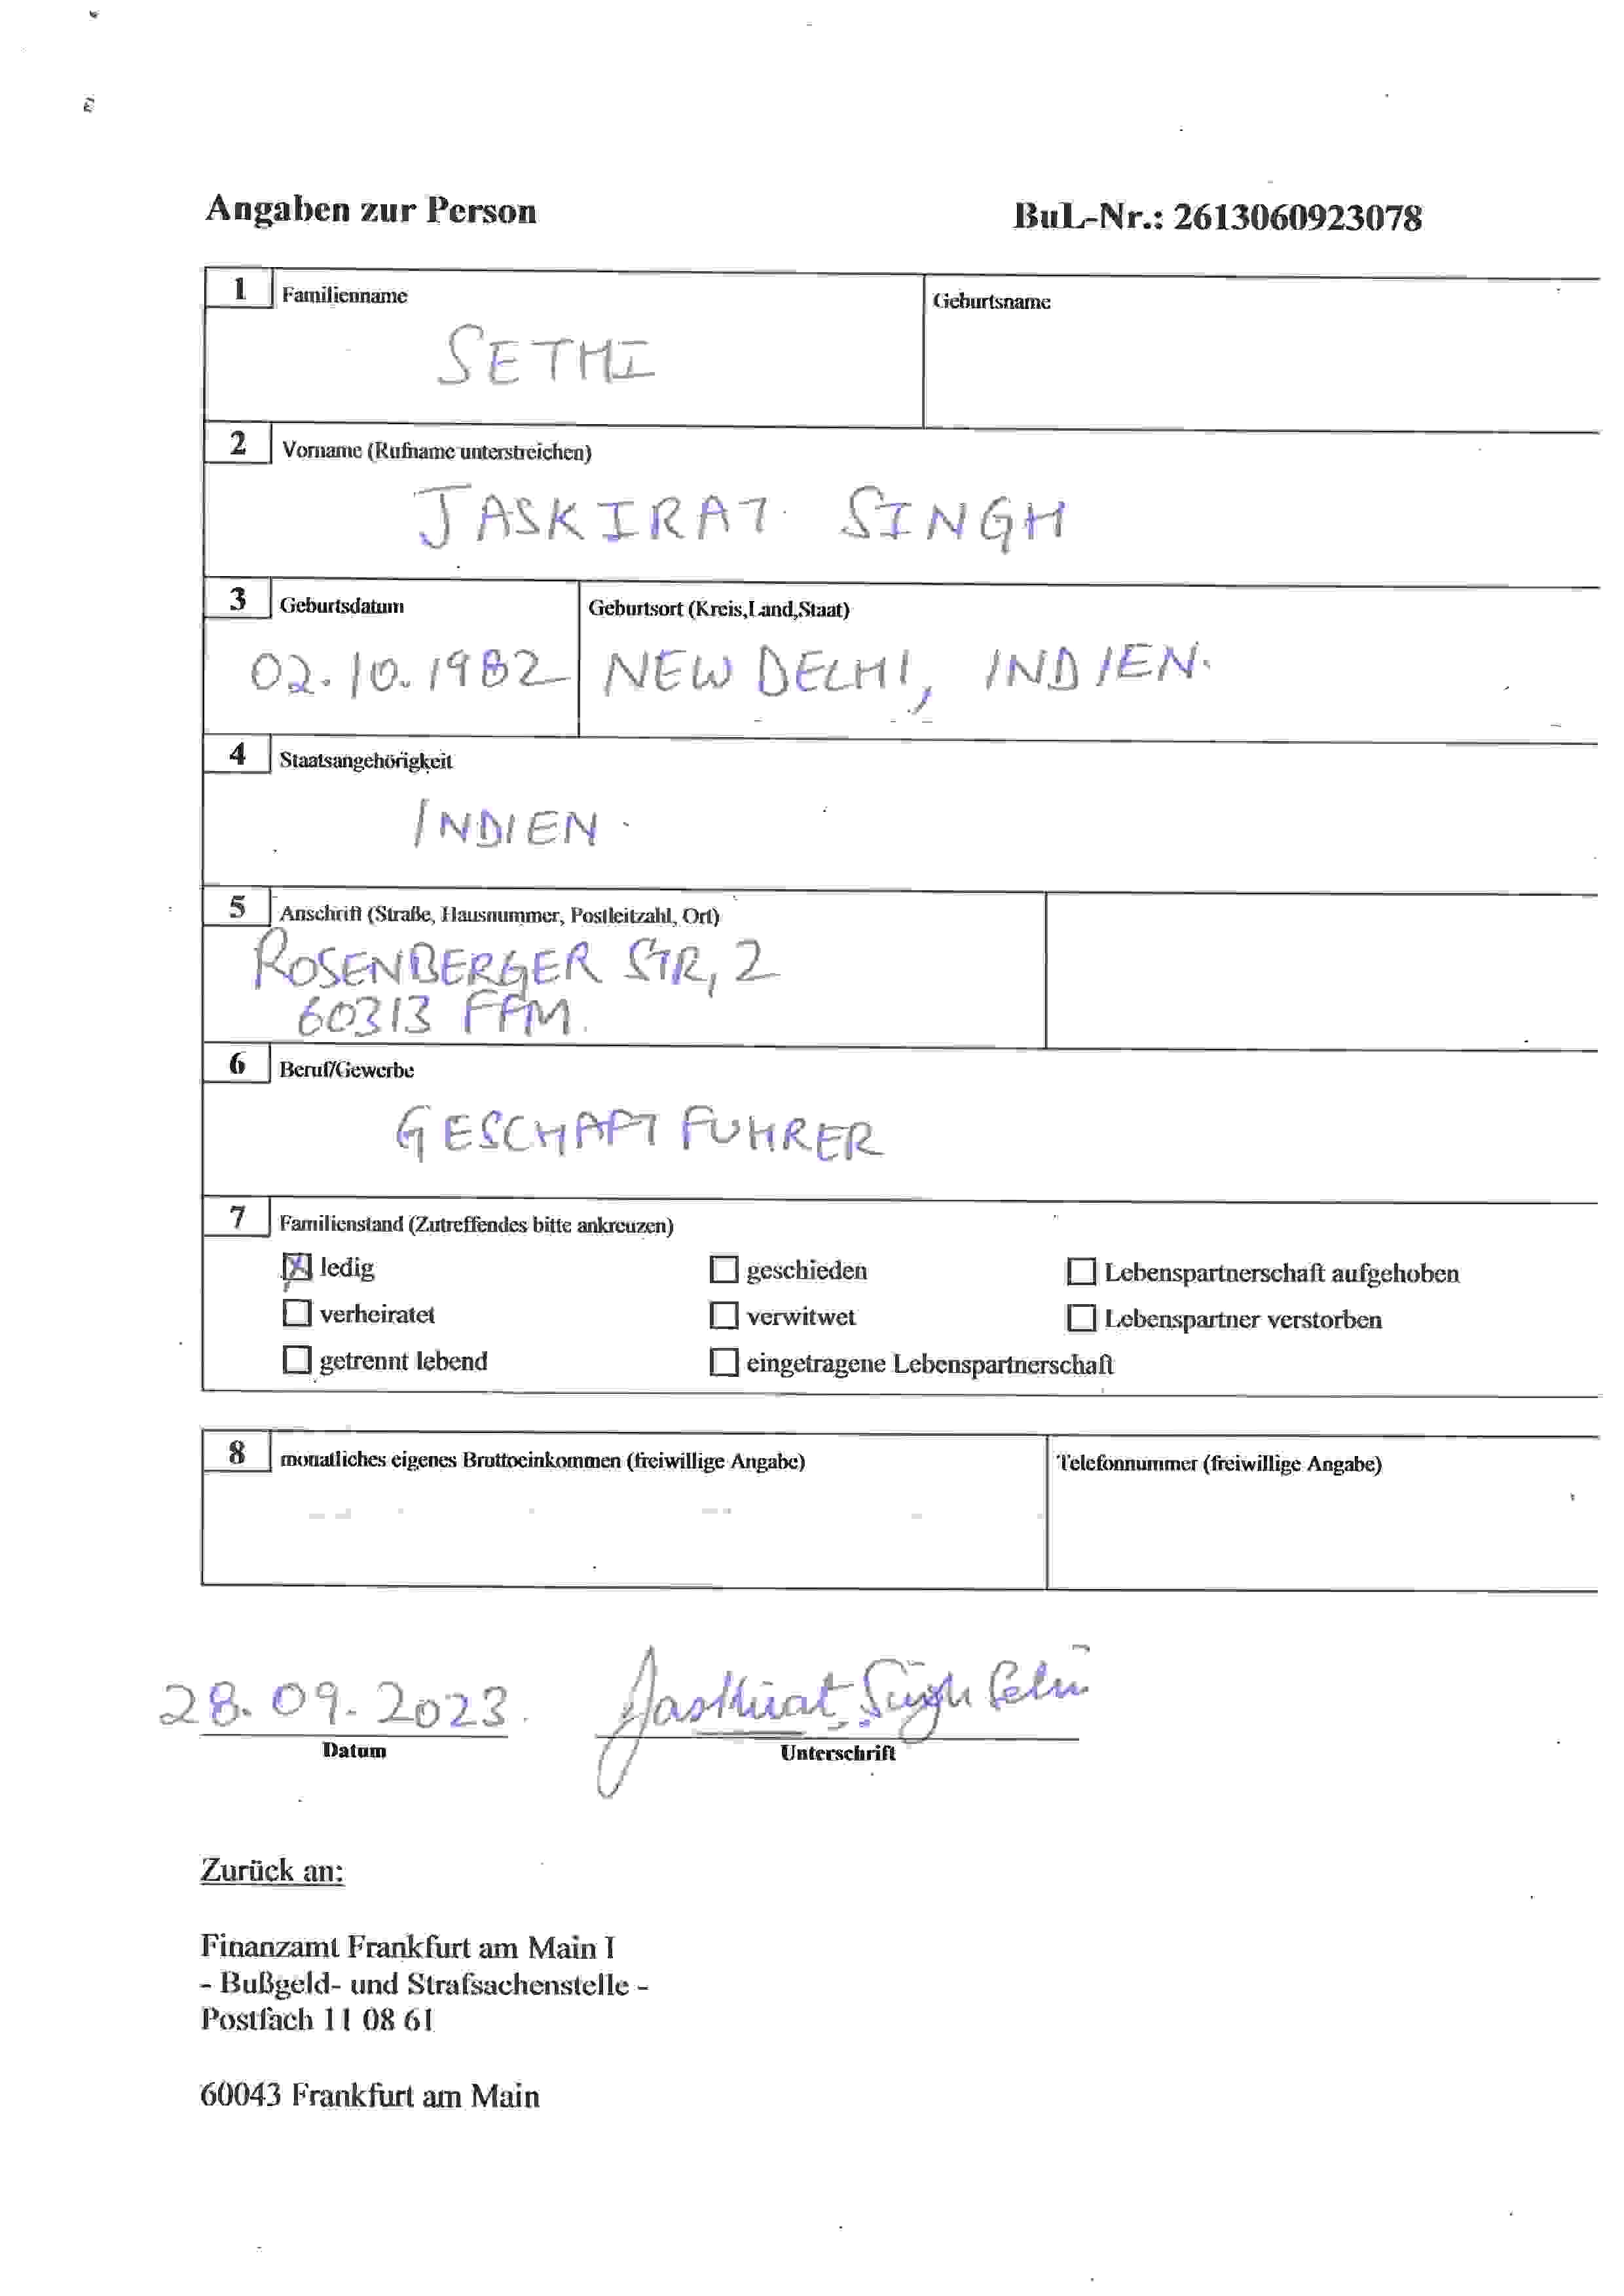 Angaben zur Person
BuL-Nr.: 2613060923078
1 Familienname
SETHI
Geburtsname
2 Vorname (Rufname unterstreichen)
JASKIRAT SINGH
3 Geburtsdatum
02.10.1982
Geburtsort (Kreis,Land,Staat)
NEW DELHI, INDIEN.
4 Staatsangehörigkeit
INDIEN
5 Anschrift (Straße, Hausnummer, Postleitzahl, Ort)
ROSENBERGER STR, 2
60313 FFM.
6 Beruf/Gewerbe
GESCHAFT FUHRER
7 Familienstand (Zutreffendes bitte ankreuzen)
ledig geschieden Lebenspartnerschaft aufgehoben
verheiratet verwitwet Lebenspartner verstorben
getrennt lebend eingetragene Lebenspartnerschaft
8 monatliches eigenes Bruttoeinkommen (freiwillige Angabe)
Telefonnummer (freiwillige Angabe)
28.09.2023. Jaskirat Singh Sethi
Datum Unterschrift
Zurück an:
Finanzamt Frankfurt am Main I
- Bußgeld- und Strafsachenstelle -
Postfach 11 08 61
60043 Frankfurt am Main